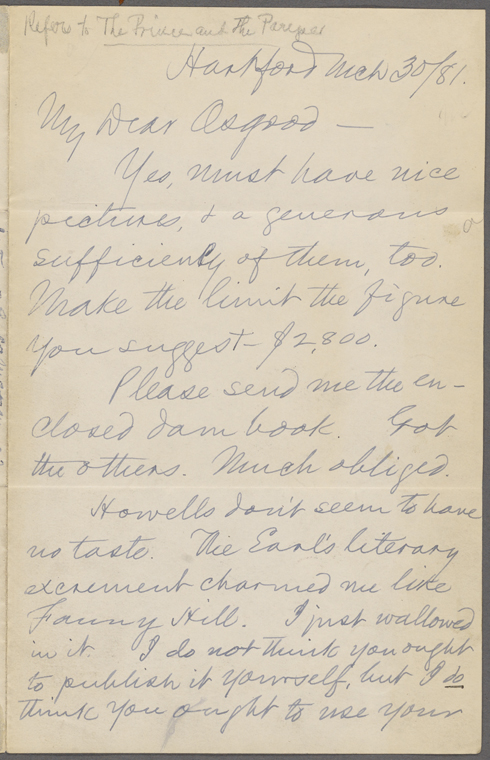 Refers to The Prince and the Pauper
Hartford Mch 30/81.
My Dear Osgood —
Yes, must have nice
pictures, & a generous
sufficiency of them, too.
Make the limit the figure
you suggest — $2,800.
Please send me the en-
closed dam book. Got
the others. Much obliged.
Howells don't seem to have
no taste. The Earl's literary
excrement charmed me like
Fanny Hill. I just wallowed
in it. I do not think you ought
to publish it yourself, but I do
think you ought to use your